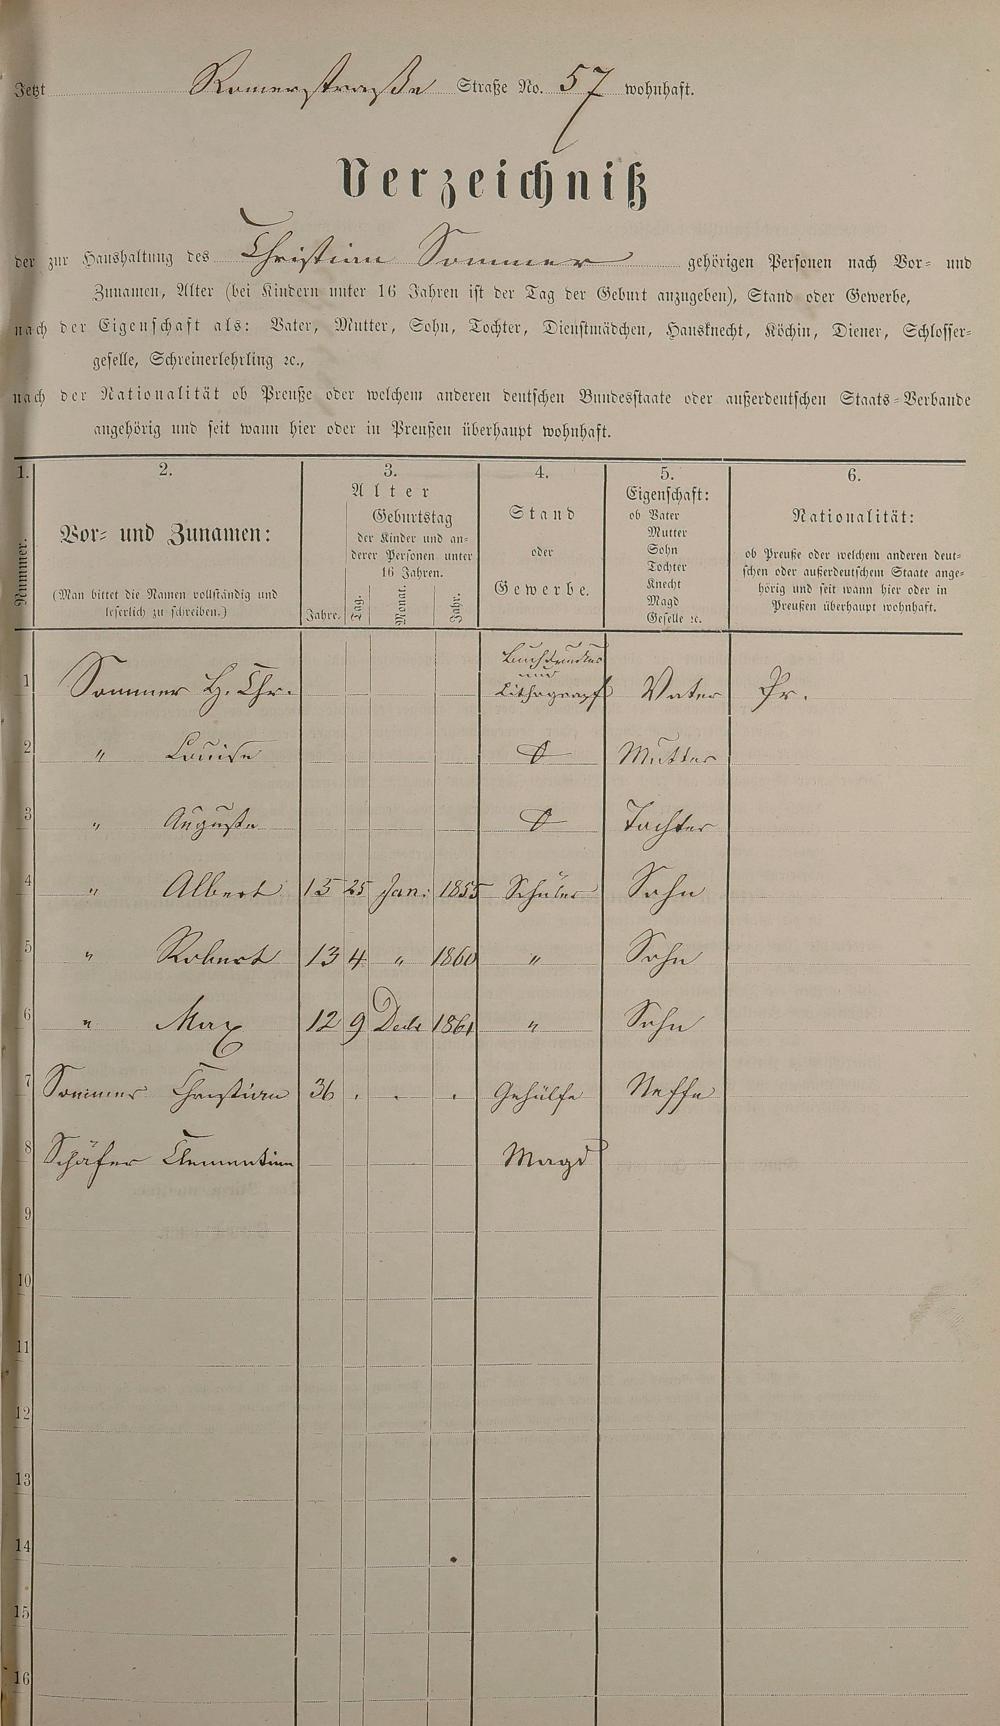 Jetzt Romerstraße Straße No. 57 wohnhaft.
Verzeichniß
der zur Haushaltung des Christian Sommer gehörigen Personen nach Vor- und
Zunamen, Alter (bei Kindern unter 16 Jahren ist der Tag der Geburt anzugeben), Stand oder Gewerbe,
nach der Eigenschaft als: Vater, Mutter, Sohn, Tochter, Dienstmädchen, Hausknecht, Köchin, Diener, Schlosser-
geselle, Schreinerlehrling ꝛc.,
nach der Nationalität ob Preuße oder welchem anderen deutschen Bundesstaate oder außerdeutschen Staats-Verbande
angehörig und seit wann hier oder in Preußen überhaupt wohnhaft.
1. 2. 3. 4. 5. 6.
Nummer.
Vor- und Zunamen:
(Man bittet die Namen vollständig und
leserlich zu schreiben.)
Alter
Geburtstag
der Kinder und an-
derer Personen unter
16 Jahren.
Jahre. Tag. Monat. Jahr.
Stand
oder
Gewerbe.
Eigenschaft:
ob Vater
Mutter
Sohn
Tochter
Knecht
Magd
Geselle ꝛc.
Nationalität:
ob Preuße oder welchem anderen deut-
schen oder außerdeutschem Staate ange-
hörig und seit wann hier oder in
Preußen überhaupt wohnhaft.
1 Sommer H. Chr. Buchdrucker
und
Lithograpf Vater Pr.
2 " Louise Mutter
3 " Auguste Tochter
4 " Albert 15 25 Jan: 1855 Schüler Sohn
5 " Robert 13 4 " 1860 " Sohn
6 " Max 12 9 Decbr 1861 " Sohn
7 Sommer Christian 36 . . . Gehülfe Neffe
8 Schäfer Clementine Magd
9
10
11
12
13
14
15
16